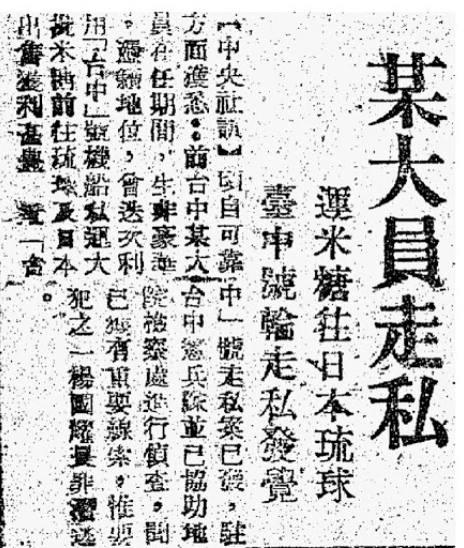 某大員走私
運米糖往日本琉球
臺中號輪走私發覺
【中央社訊】頃自可靠
方面獲悉：前台中某大
員在任期間，生活豪華
，憑藉地位，曾迭次利
用「台中」號機船私運大
批米糖前往琉球及日本
出售獲利甚鉅 查「台
中」號走私案已發，駐
台中憲兵隊並已協助地
院檢察處進行偵查，聞
已獲有重要線索，惟要
犯之一楊國耀畏罪潛逃
。